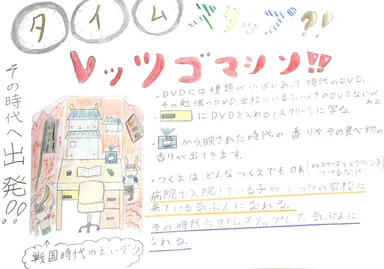 タイムスリップ??
レッツゴマシン!!
その時代へ出発!!
・DVDには種類がいっぱいあって時代のDVD、
その勉強のDVD、出校しているふんいきのDVDなどがある。
にDVDを入れるとスクリーンに写る。
・から映された時代の香りやその食べ物の
香りが出てきます。
・つくえはどんなつくえでもOK(DVDケースとスクリーンをつけるだけ)
病院で入院している子がふつうの学校に
来ている気ぶんになれる。
その時代にタイムスリップした気ぶんに
なれる。
戦国時代のえいぞう